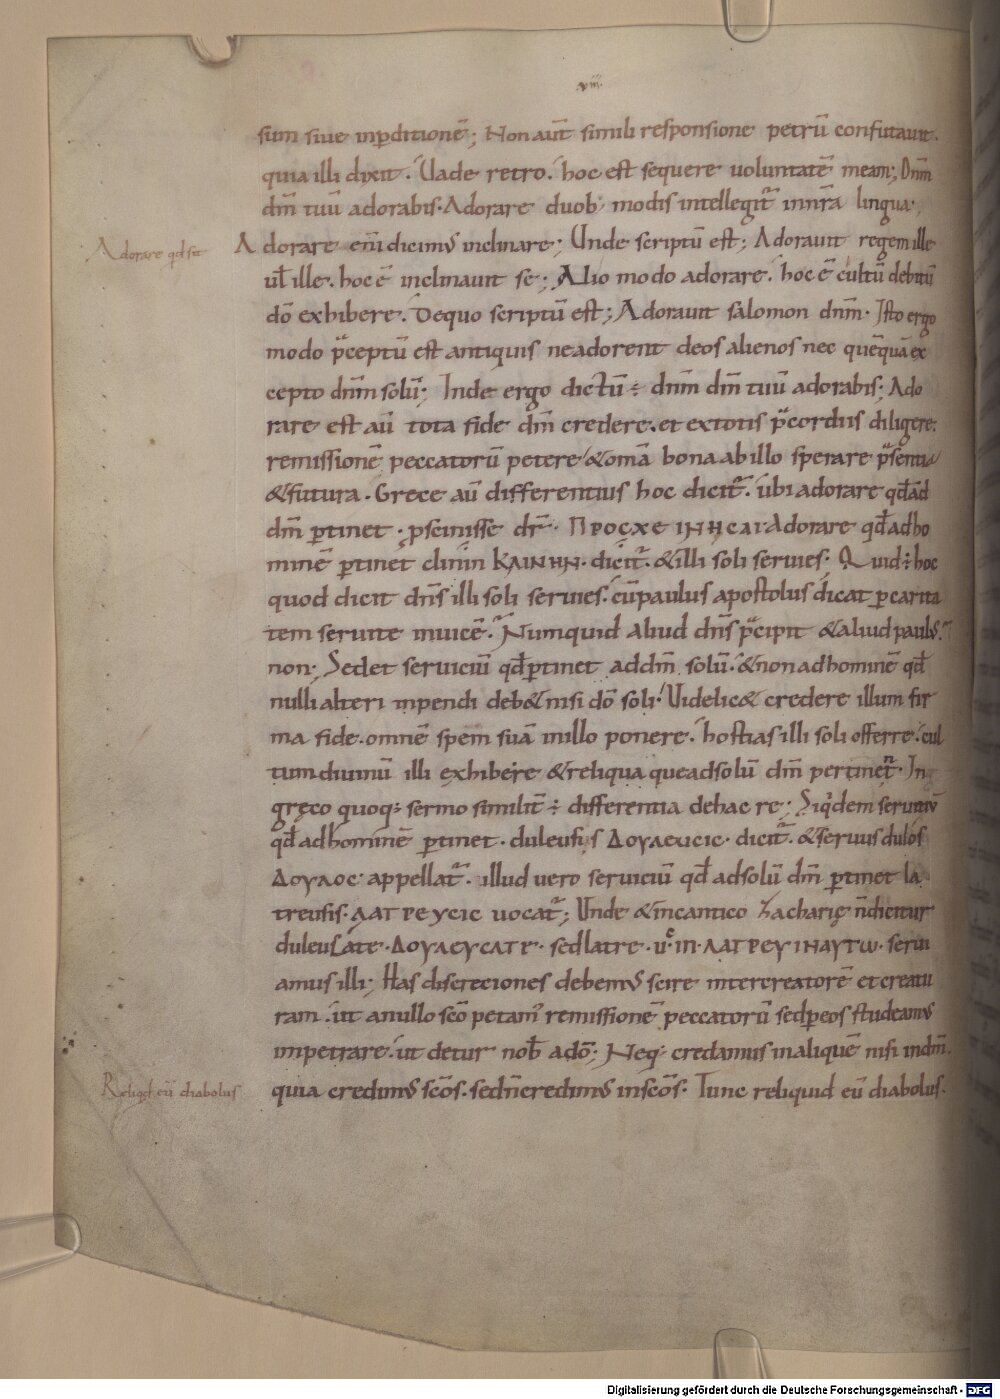 viii
sim siue inp̄ditionē; Non aut̄ simili responsione petrū confutauit.
quia illi dixit. Uade retro. hoc est sequere uoluntatē meam; Dn̄m
dm̄ tuū adorabis. Adorare duob; modis intellegit̄ in nr̄a lingua.
Adorare qd sit
Adorare eni dicim᾽ inclinare; Unde scriptū est; Adorauit regem ille
ul̄ ille. hoc ē inclinauit se; Alio modo adorare. hoc ē cultū debitū
dō exhibere. De quo scriptū est; Adorauit salomon dnm̄. Isto ergo
modo p̄ceptū est antiquis ne adorent deos alienos nec quēquā ex
cepto dnm̄ solū; Inde ergo dictū ÷ dnm̄ dm̄ tuū adorabis; Ado
rare est aū tota fide dm̄ credere. et ex totis p̄cordiis diligere.
remissionē peccatorū petere & om̄a bona ab illo sperare p̄sentia
& futura. Grece aū differentius hoc dicit̄. ubi adorare qd̄ ad
dm̄ ptinet. pscinisse dr̄. ΠΡΟϹΧΕ ΙΝΗϹΑΙ. Adorare qd̄ ad ho
minē ptinet clinin ΚΛΙΝΗΝ. dicit̄. & illi soli seruies. Quid ÷ hoc
quod dicit dn̄s illi soli seruies. cū paulus apostolus dicat p carita
tem seruite inuicē. Numquid aliud dn̄s p̄cipit & aliud paul᾽
non; Sed et seruiciū qd̄ ptinet ad dm̄ solū. & non ad hominē qd̄
nulli alteri inpendi deb& nisi dō soli. Uidelic& credere illum fir
ma fide. omnē spem suā in illo ponere. hostias illi soli offerre. cul
tum diuinū illi exhibere & reliqua que ad solū dm̄ pertinent. In
gręco quoq; sermo similit̄ ÷ differentia de hac re; Siqdem seruitiū
qd̄ ad hominē ptinet. duleusis ΔΟΥΛΕΥϹΙϹ. dicit̄. & seruus dulos
ΔΟΥΛΟϹ. appellat̄. illud uero seruiciū qd̄ ad solū dm̄ ptinet la
treusis. ΛΑΤΡΕΥϹΙϹ uocat̄; Unde & in cantico Zacharię n̄ dicitur
duleusate. ΔΟΥΛΕΥϹΑΤΕ. sed latre. u. in. ΛΑΤΡΕΥΙΝΑΥΤΩ. serui
amus illi; Has discreciones debem᾽ scire inter creatorē et creatu
ram. ut a nullo scō petam᾽ remissionē peccatorū sed p eos studeam᾽
impetrare. ut detur nob̄ a dō; Neq; credamus in aliquē nisi in dm̄.
Reliqd eū diabolus
quia credim᾽ scōs. sed n̄ credim᾽ in scōs. Tunc reliquid eū diabolus.
Digitalisierung gefördert durch die Deutsche Forschungsgemeinschaft - DFG